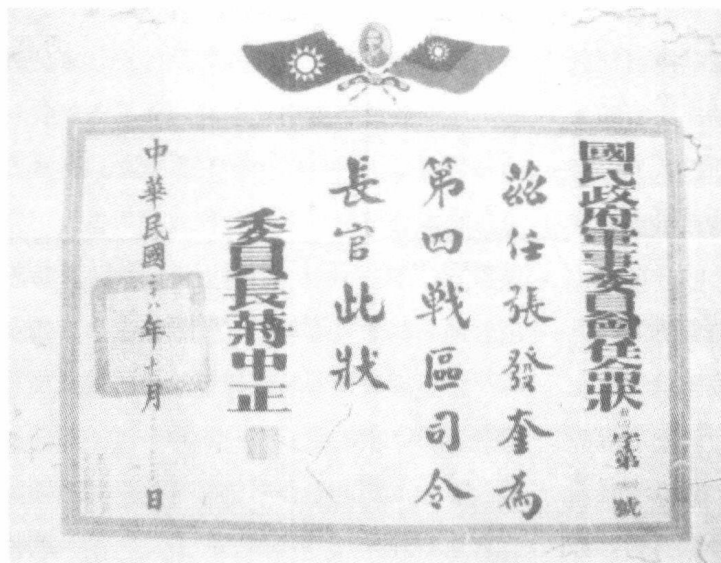 國民政府軍事委員會任命狀 字第 號
茲任張發奎為
第四戰區司令
長官此狀
委員長蔣中正
中華民國廿八年十月 日